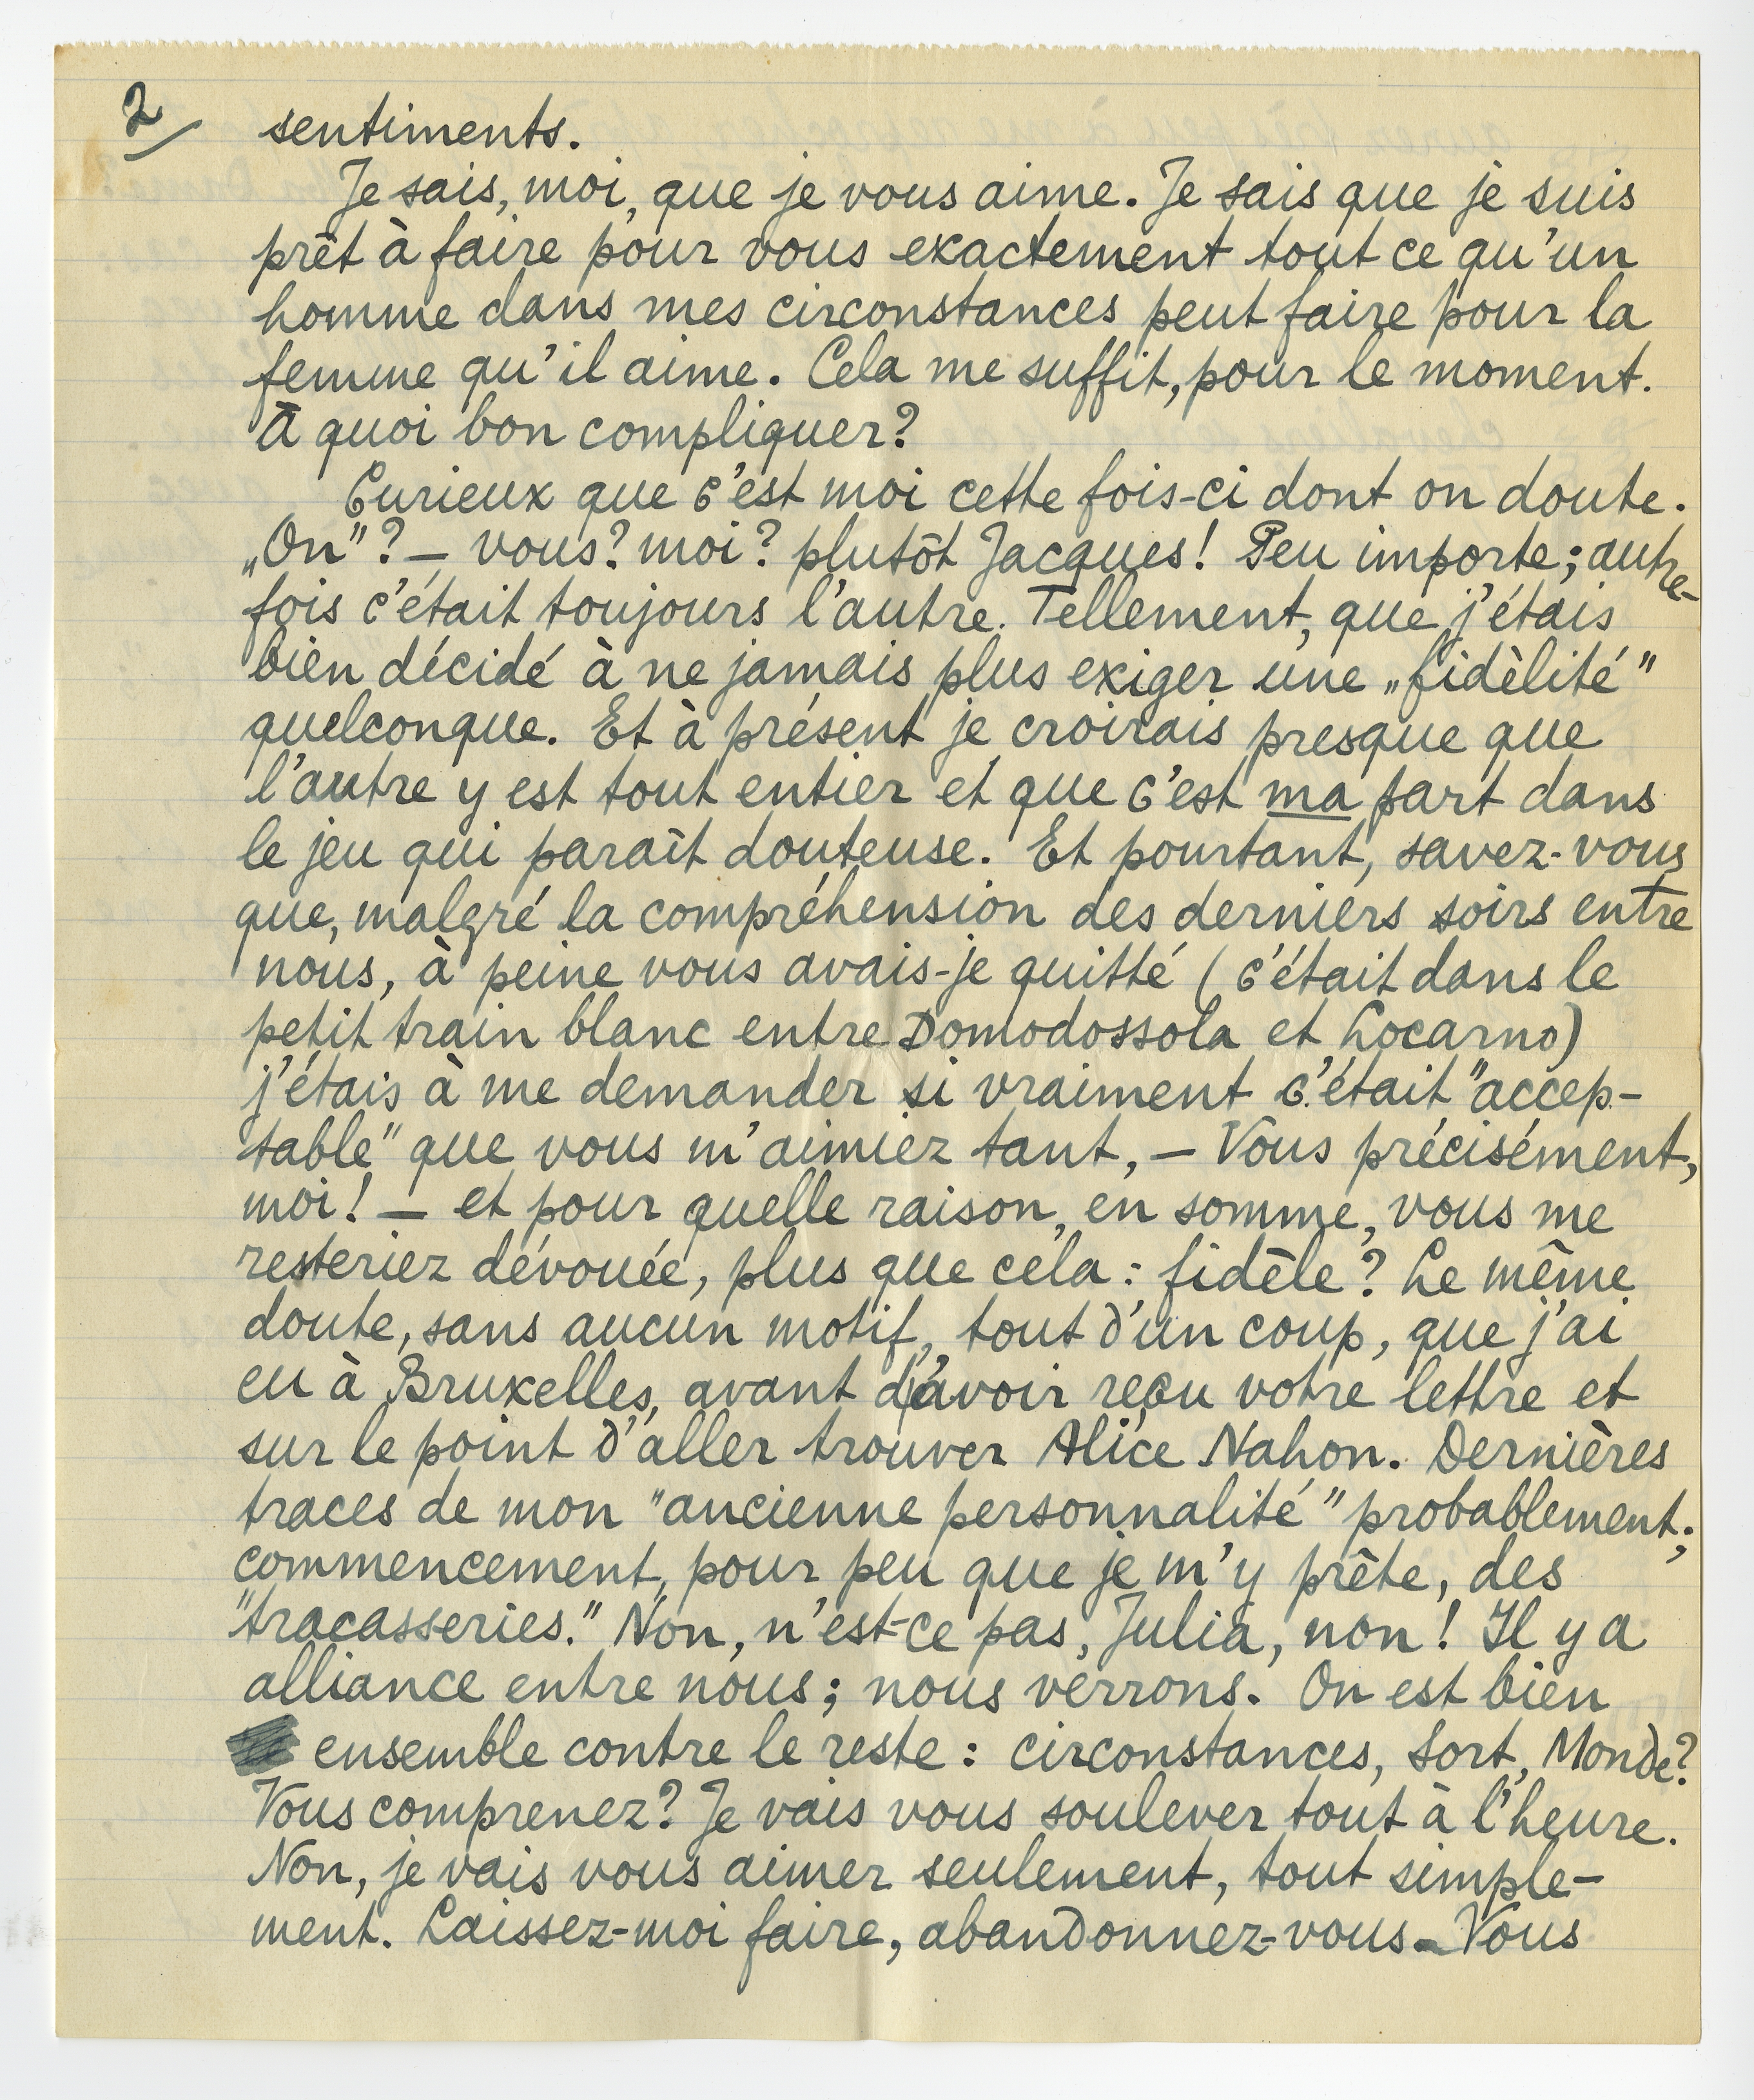 2/
sentiments.
Je sais, moi, que je vous aime. Je sais que je suis
prêt à faire pour vous exactement tout ce qu'un
homme dans mes circonstances peut faire pour la
femme qu'il aime. Cela me suffit, pour le moment.
À quoi bon compliquer?
Curieux que c'est moi cette fois-ci dont on doute.
„On"? — vous? moi? plutôt Jacques! Peu importe; autre-
fois c'était toujours l'autre. Tellement, que j'étais
bien décidé à ne jamais plus exiger une „fidèlité"
quelconque. Et à présent je croirais presque que
l'autre y est tout entier et que c'est ma part dans
le jeu qui paraît douteuse. Et pourtant, savez-vous
que, malgré la compréhension des derniers soirs entre
nous, à peine vous avais-je quitté (c'était dans le
petit train blanc entre Domodossola et Locarno)
j'étais à me demander si vraiment c'était "accep-
table" que vous m'aimiez tant, — Vous précisément,
moi! — et pour quelle raison, en somme, vous me
resteriez dévouée, plus que cela: fidèle? Le même
doute, sans aucun motif, tout d'un coup, que j'ai
eu à Bruxelles, avant d'avoir reçu votre lettre et
sur le point d'aller trouver Alice Nahon. Dernières
traces de mon "ancienne personnalité" probablement;
commencement, pour peu que je m'y prête, des
"tracasseries." Non, n'est-ce pas, Julia, non! Il y a
alliance entre nous; nous verrons. On est bien
ensemble contre le reste: circonstances, Sort, Monde?
Vous comprenez? Je vais vous soulever tout à l'heure.
Non, je vais vous aimer seulement, tout simple-
ment. Laissez-moi faire, abandonnez-vous. Vous